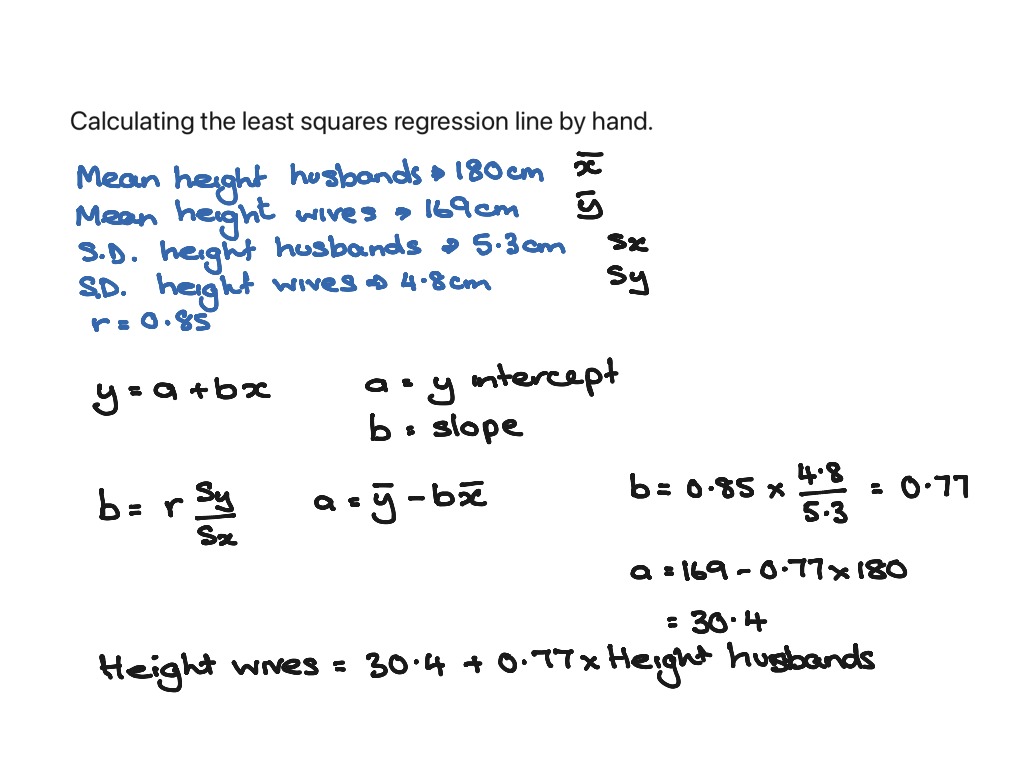 Calculating the least squares regression line by hand.
Mean height husbands → 180cm x̅
Mean height wives → 169cm y̅
S.D. height husbands → 5.3cm Sx
S.D. height wives → 4.8cm Sy
r = 0.85
y = a + bx a = y intercept
b = slope
b = r Sy/Sx a = y̅ - bx̅ b = 0.85 × 4.8/5.3 = 0.77
a = 169 - 0.77 × 180
= 30.4
Height wives = 30.4 + 0.77 × Height husbands